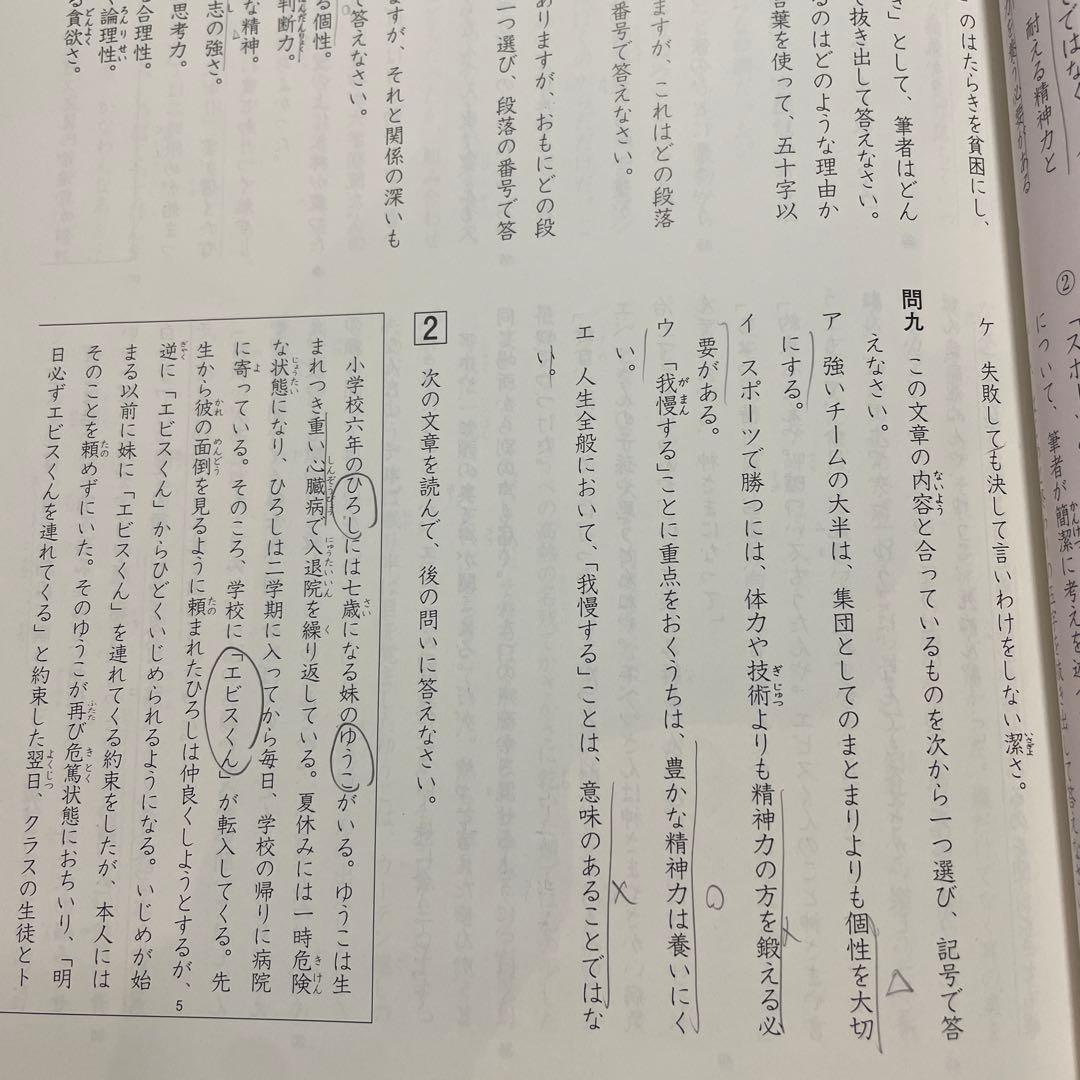 ② 「スポー
について、筆者が簡潔に考えを述べ
ではなく、
耐える精神力と
のはたらきを貧困にし、
き」として、筆者はどん
で抜き出して答えなさい。
るのはどのような理由か
言葉を使って、五十字以
ますが、これはどの段落
番号で答えなさい。
ありますが、おもにどの段
一つ選び、段落の番号で答
ますが、それと関係の深いも
で答えなさい。
る個性。
判断力。
な精神。
志の強さ。
思考力。
る合理性。
く論理性。
る貪欲さ。
ケ 失敗しても決して言いわけをしない潔さ。
問九 この文章の内容と合っているものを次から一つ選び、記号で答
えなさい。
ア 強いチームの大半は、集団としてのまとまりよりも個性を大切
にする。
イ スポーツで勝つには、体力や技術よりも精神力の方を鍛える必
要がある。
ウ 「我慢する」ことに重点をおくうちは、豊かな精神力は養いにく
い。
エ 人生全般において、「我慢する」ことは、意味のあることではな
い。
2 次の文章を読んで、後の問いに答えなさい。
小学校六年のひろしには七歳になる妹のゆうこがいる。ゆうこは生
まれつき重い心臓病で入退院を繰り返している。夏休みには一時危険
な状態になり、ひろしは二学期に入ってから毎日、学校の帰りに病院
に寄っている。そのころ、学校に「エビスくん」が転入してくる。先
生から彼の面倒を見るように頼まれたひろしは仲良くしようとするが、
逆に「エビスくん」からひどくいじめられるようになる。いじめが始
まる以前に妹に「エビスくん」を連れてくる約束をしたが、本人には
そのことを頼めずにいた。そのゆうこが再び危篤状態におちいり、「明
日必ずエビスくんを連れてくる」と約束した翌日、クラスの生徒とト
5